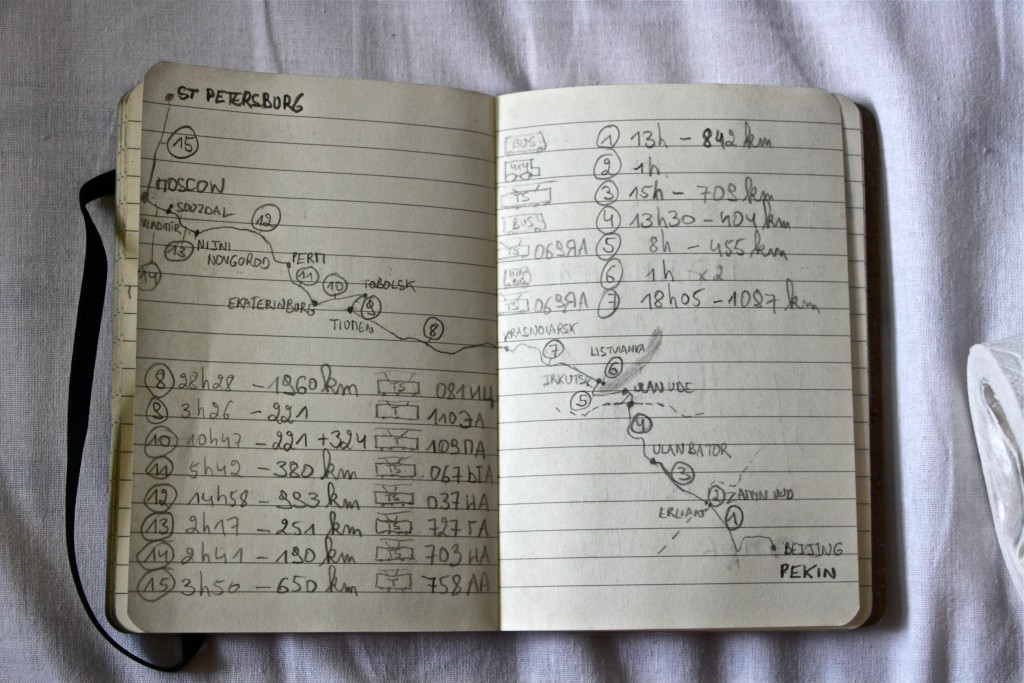 ST PETERSBURG
15
MOSCOW
SOUZDAL
VLADIMIR
12
13
NIJNI
NOVGOROD
PERM
14
11
10
TOBOLSK
EKATERINBURG
9
TIUMEN
8
8 28h28 - 1960 km TS 081ИЦ
9 3h26 - 221 T 110ЭА
10 10h47 - 221 + 324 T 109ПА
11 5h42 - 380 km TS 067ЫА
12 14h58 - 993 km TS 037НА
13 2h17 - 251 km TS 727ГА
14 2h41 - 190 km TS 703НА
15 3h50 - 650 km T 758ЛА
BUS 1 13h - 842 km
4x4 2 1h
TS 3 15h - 709 km
BUS 4 13h30 - 404 km
TS 069ЯЛ 5 8h - 455 km
MINI BUS 6 1h x2
TS 069ЯЛ 7 18h05 - 1087 km
KRASNOIARSK
7
LISTVIANKA
6
IRKUTSK
ULAN UDE
5
4
ULAN BATOR
3
2 ZAMYN UUD
ERLIAN
1
BEIJING
PEKIN